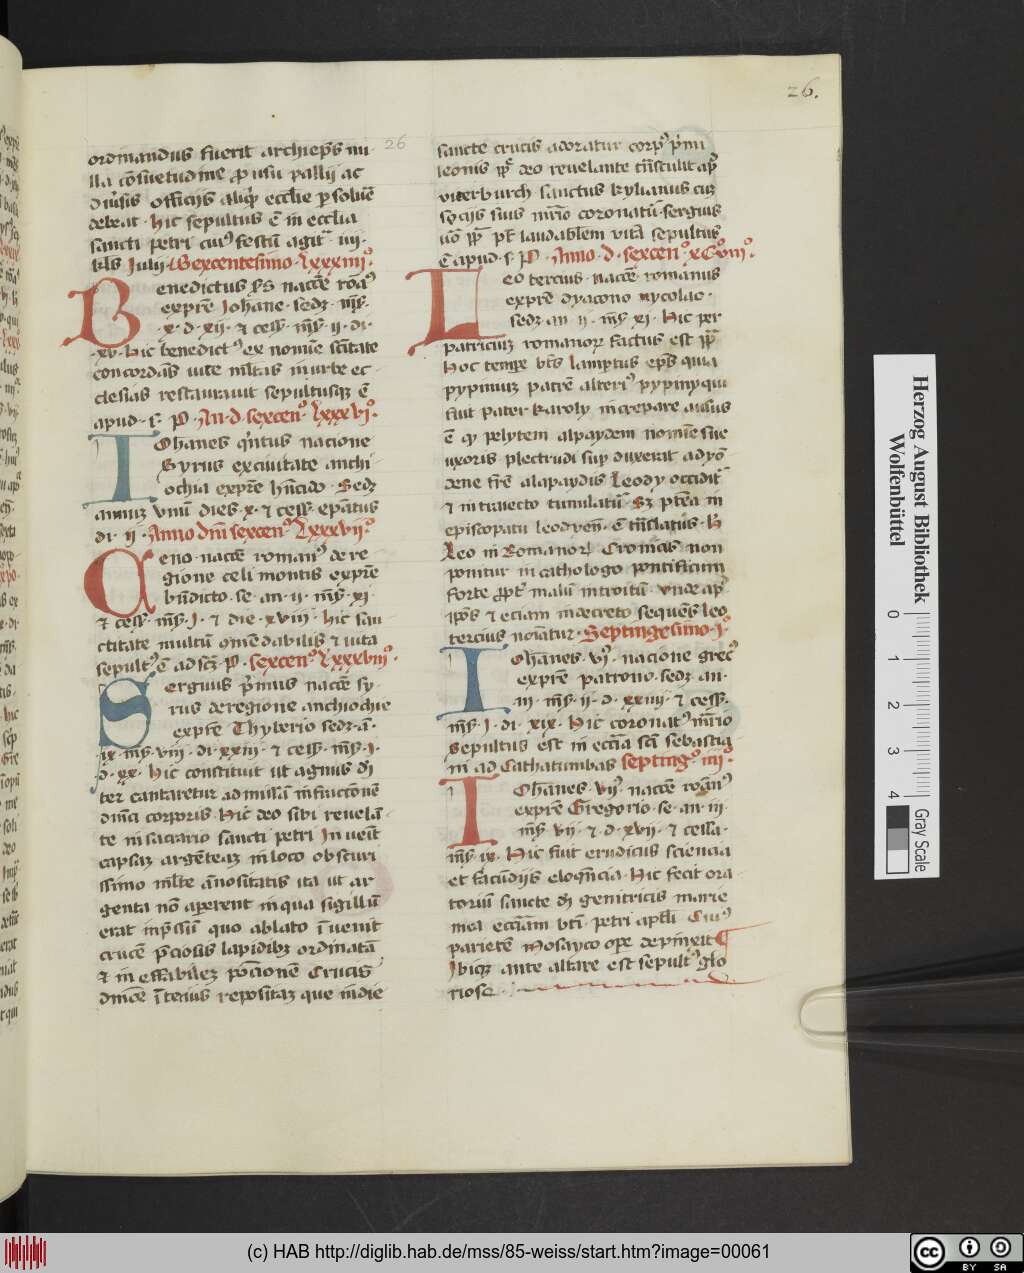 26.
26
ordinandus fuerit archiep̄s nu
lla cōsuetudīne ꝓ usu pallij ac
diu͛sis officijs aliq͛ ecclie ꝑsolu͛e
debeat · hic sepultus ē in ecclia
sancti petri cuiꝰ festū agit᷑ iiij ·
kls Julij Sexcentesimo · lxxxiiijº
Benedictus s͛s nac̄oe roāꝰ
exp̄re Johāne · sedꝫ · mēs̄ ·
· x · d · xij · ⁊ cess̄ · mēs̄ · ij · di ·
· xv · hic benedictꝰ ex nomīe sc̄itate
concordās uite ml̄tas in urbe ec
clesias restaurauit sepultusqꝫ ē
apud · s · P · An · d · sexcenº lxxxviº
Iohanes qi̇ntus nacione
Syrus exciuitate anthi
ochia exp̄re · Sedꝫ
annuꝫ vnū dies · x · ⁊ cess̄ · ep̄atus
di · ij · Anno dn̄i sexcenº lxxxvijº
Ceno nac̄oe romanꝰ de re
gione celi montis exp̄re
bn̄dicto · se · an · ij · mēs̄ · xi ·
⁊ cess̄ · mēs̄ · j · ⁊ die · xviij · hic san
ctitate multū ꝯmēdabilis ⁊ uita
sepultꝰ ē ad sc̄m · P · sexcenº lxxxviijº
Sergius p̄mus nac̄oe sy
rus de regione anthiochie
exp̄re Thyberio sedꝫ · ā ·
· ix · mēs̄ · viij · di · xxiij · ⁊ cess̄ · mēs̄ · j ·
· d · xx · hic constituit ut agnus di
ter cantaretur ad missā in fractōnē
dn̄ici corporis · Hic deo sibi reuelā
te in sacrario sancti petri Inuenit
capsaꝫ argēteaꝫ in loco obscuri
ssimo ml̄te ānositatis ita ut ar
genta nō aperent in qua sigillū
erat imp̄ssū quo ablato īuenit
crucē p̄ciosis lapidibꝫ ordinatā
⁊ in effabileꝫ ꝑc̄ionē Crucis
dn̄ice īterius repositaꝫ que in die
sancte crucis adoratur corpꝰ p̄mi
leonis pp̄ deo reuelante tn̄stulit ap̄
viterburch sanctus kylianus cū
socijs suis mr̄rio coronatꝰ · sergius
uō pp̄ pt̄ laudabilem vitā sepultus
ē apud · s · P · Anno · d · sexcenº xcviijº
Leo tercius nac̄oe romanus
exp̄re dyacono nycolao ·
sedꝫ · an · ij · mēs̄ · xi · Hic per
patriciuꝫ romanoꝝ factus est pp̄
Hoc tempe bt̄s lamptus ep̄s quia
pypinuꝫ patrē alteriꝰ pypiny qui
fuit pater karoly increpare ausus
ē ꝙ pelytem alpaydem nomīe sue
uxoris plectrudi sup duxerat a dyo
dene fr̄e alapaydis leody occidit᷑
⁊ in traiecto tumulatū Sꝫ pt̄ea in
episcopatu leodyen̄ · ē tn̄slatus · H
Leo in Romanorū Cronicis non
ponitur in cathologo pontificum
forte ꝓpt᷑ malū introitū · vnde ap̄
ip̄os ⁊ eciam in decreto sequēs leo
tercius noīatur · Septingesimo · jº
Iohānes · vjꝰ · nacione grecꝰ
exp̄re patrono · sedꝫ · an ·
iij · mēs̄ · ij · d · xxiiij · ⁊ cess̄ ·
mēs̄ · j · di · xix · Hic coronatꝰ mr̄rio
sepultus est in ecc̄ia sc̄i sebastia
ni ad Cathatumbas septingº iiijº
Iohānes · vijꝰ · nac̄oe roāꝰ
exp̄re Gregorio · se · an · iij ·
mēs̄ · vij · ⁊ d · xvij · ⁊ cessa ·
mēs̄ · ix · Hic fuit erudicus sciencia
et facūdijs eloqn̄cia · Hic fecit ora
toriū sancte di genitricis marie
in ea ecc̄iam bt̄i petri apl̄i Cuiꝰ
parietē Mosayco ope depinxit
Ibiqꝫ ante altare est sepultꝰ glo
riose ·
Herzog August Bibliothek
Wolfenbüttel
0 1 2 3 4
Gray Scale
(c) HAB http://diglib.hab.de/mss/85-weiss/start.htm?image=00061
cc BY SA